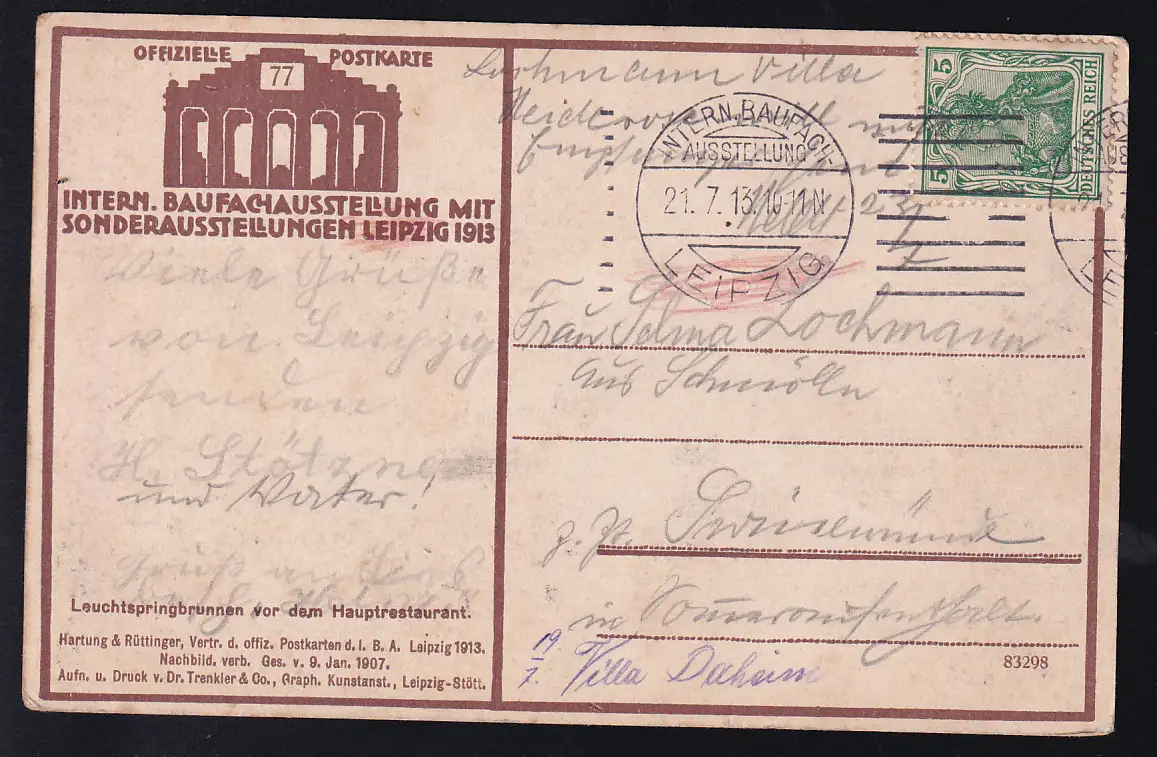 OFFIZIELLE POSTKARTE
77
INTERN. BAUFACHAUSSTELLUNG MIT
SONDERAUSSTELLUNGEN LEIPZIG 1913
Viele Grüße
von Leipzig
senden
H. Stötzner
und Vater!
Leuchtspringbrunnen vor dem Hauptrestaurant.
Hartung & Rüttinger, Vertr. d. offiz. Postkarten d. I. B. A. Leipzig 1913.
Nachbild. verb. Ges. v. 9. Jan. 1907.
Aufn. u. Druck v. Dr. Trenkler & Co., Graph. Kunstanst., Leipzig-Stött.
Lochmann Villa
INTERN. BAUFACH-
AUSSTELLUNG
21. 7. 13. 10-11 N
LEIPZIG
5 DEUTSCHES REICH 5
Frau Selma Lochmann
aus Schmölln
z. Zt. Swinemünde
in Sommeraufenthalt.
19/7. Villa Daheim
83298